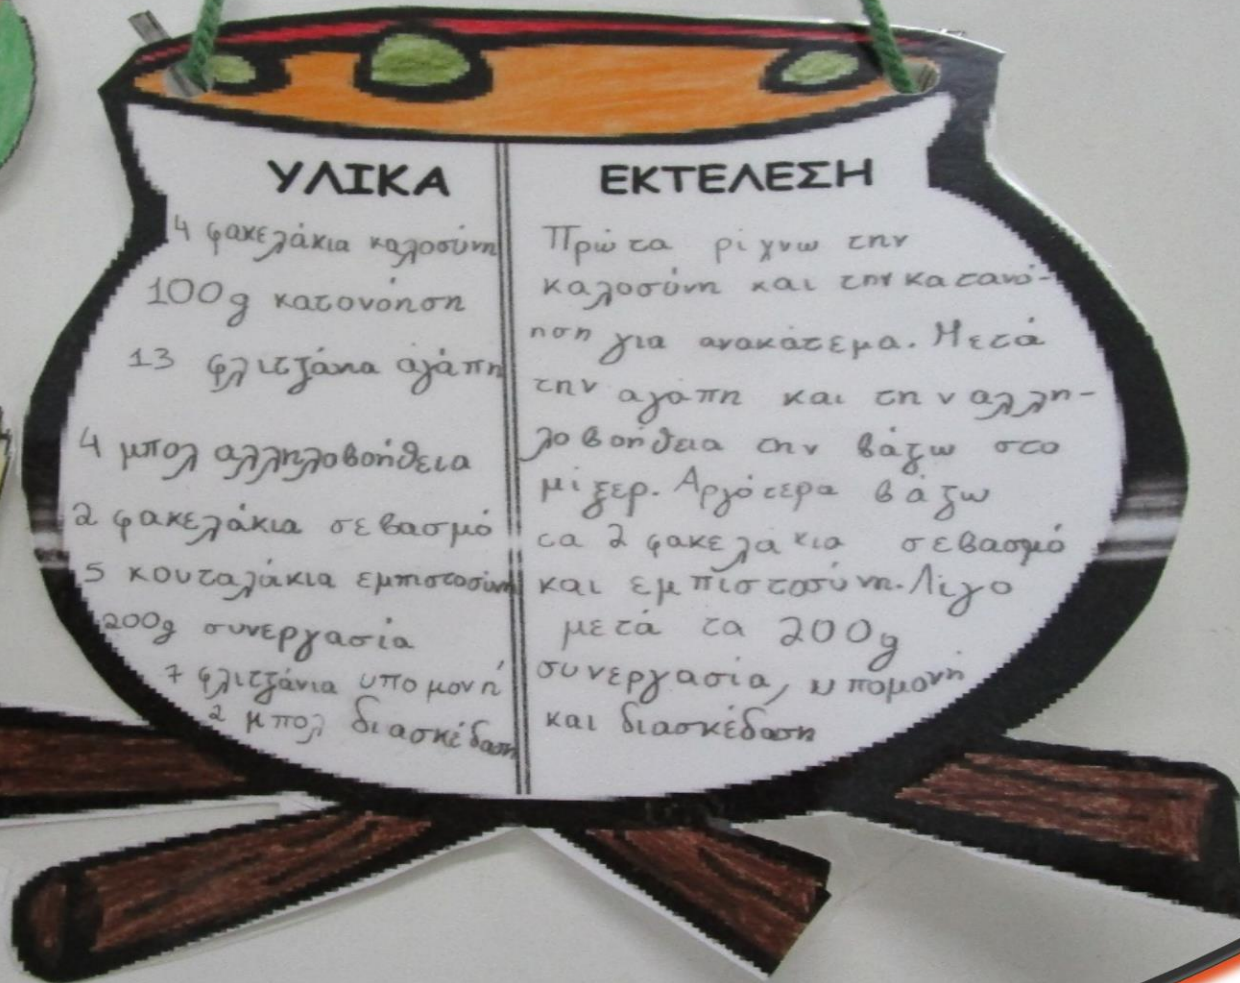 ΥΛΙΚΑ
4 φακελάκια καλοσύνη
100g κατονόηση
13 φλιτζάνια αγάπη
4 μπολ αλληλοβοήθεια
2 φακελάκια σεβασμό
5 κουταλάκια εμπιστοσύνη
200g συνεργασία
7 φλιτζάνια υπομονή
2 μπολ διασκέδαση
ΕΚΤΕΛΕΣΗ
Πρώτα ρίχνω την
καλοσύνη και την κατανό-
ηση για ανακάτεμα. Μετά
την αγάπη και την αλλη-
λοβοήθεια την βάζω στο
μίξερ. Αργότερα βάζω
τα 2 φακελάκια σεβασμό
και εμπιστοσύνη. Λίγο
μετά τα 200g
συνεργασία, υπομονή
και διασκέδαση